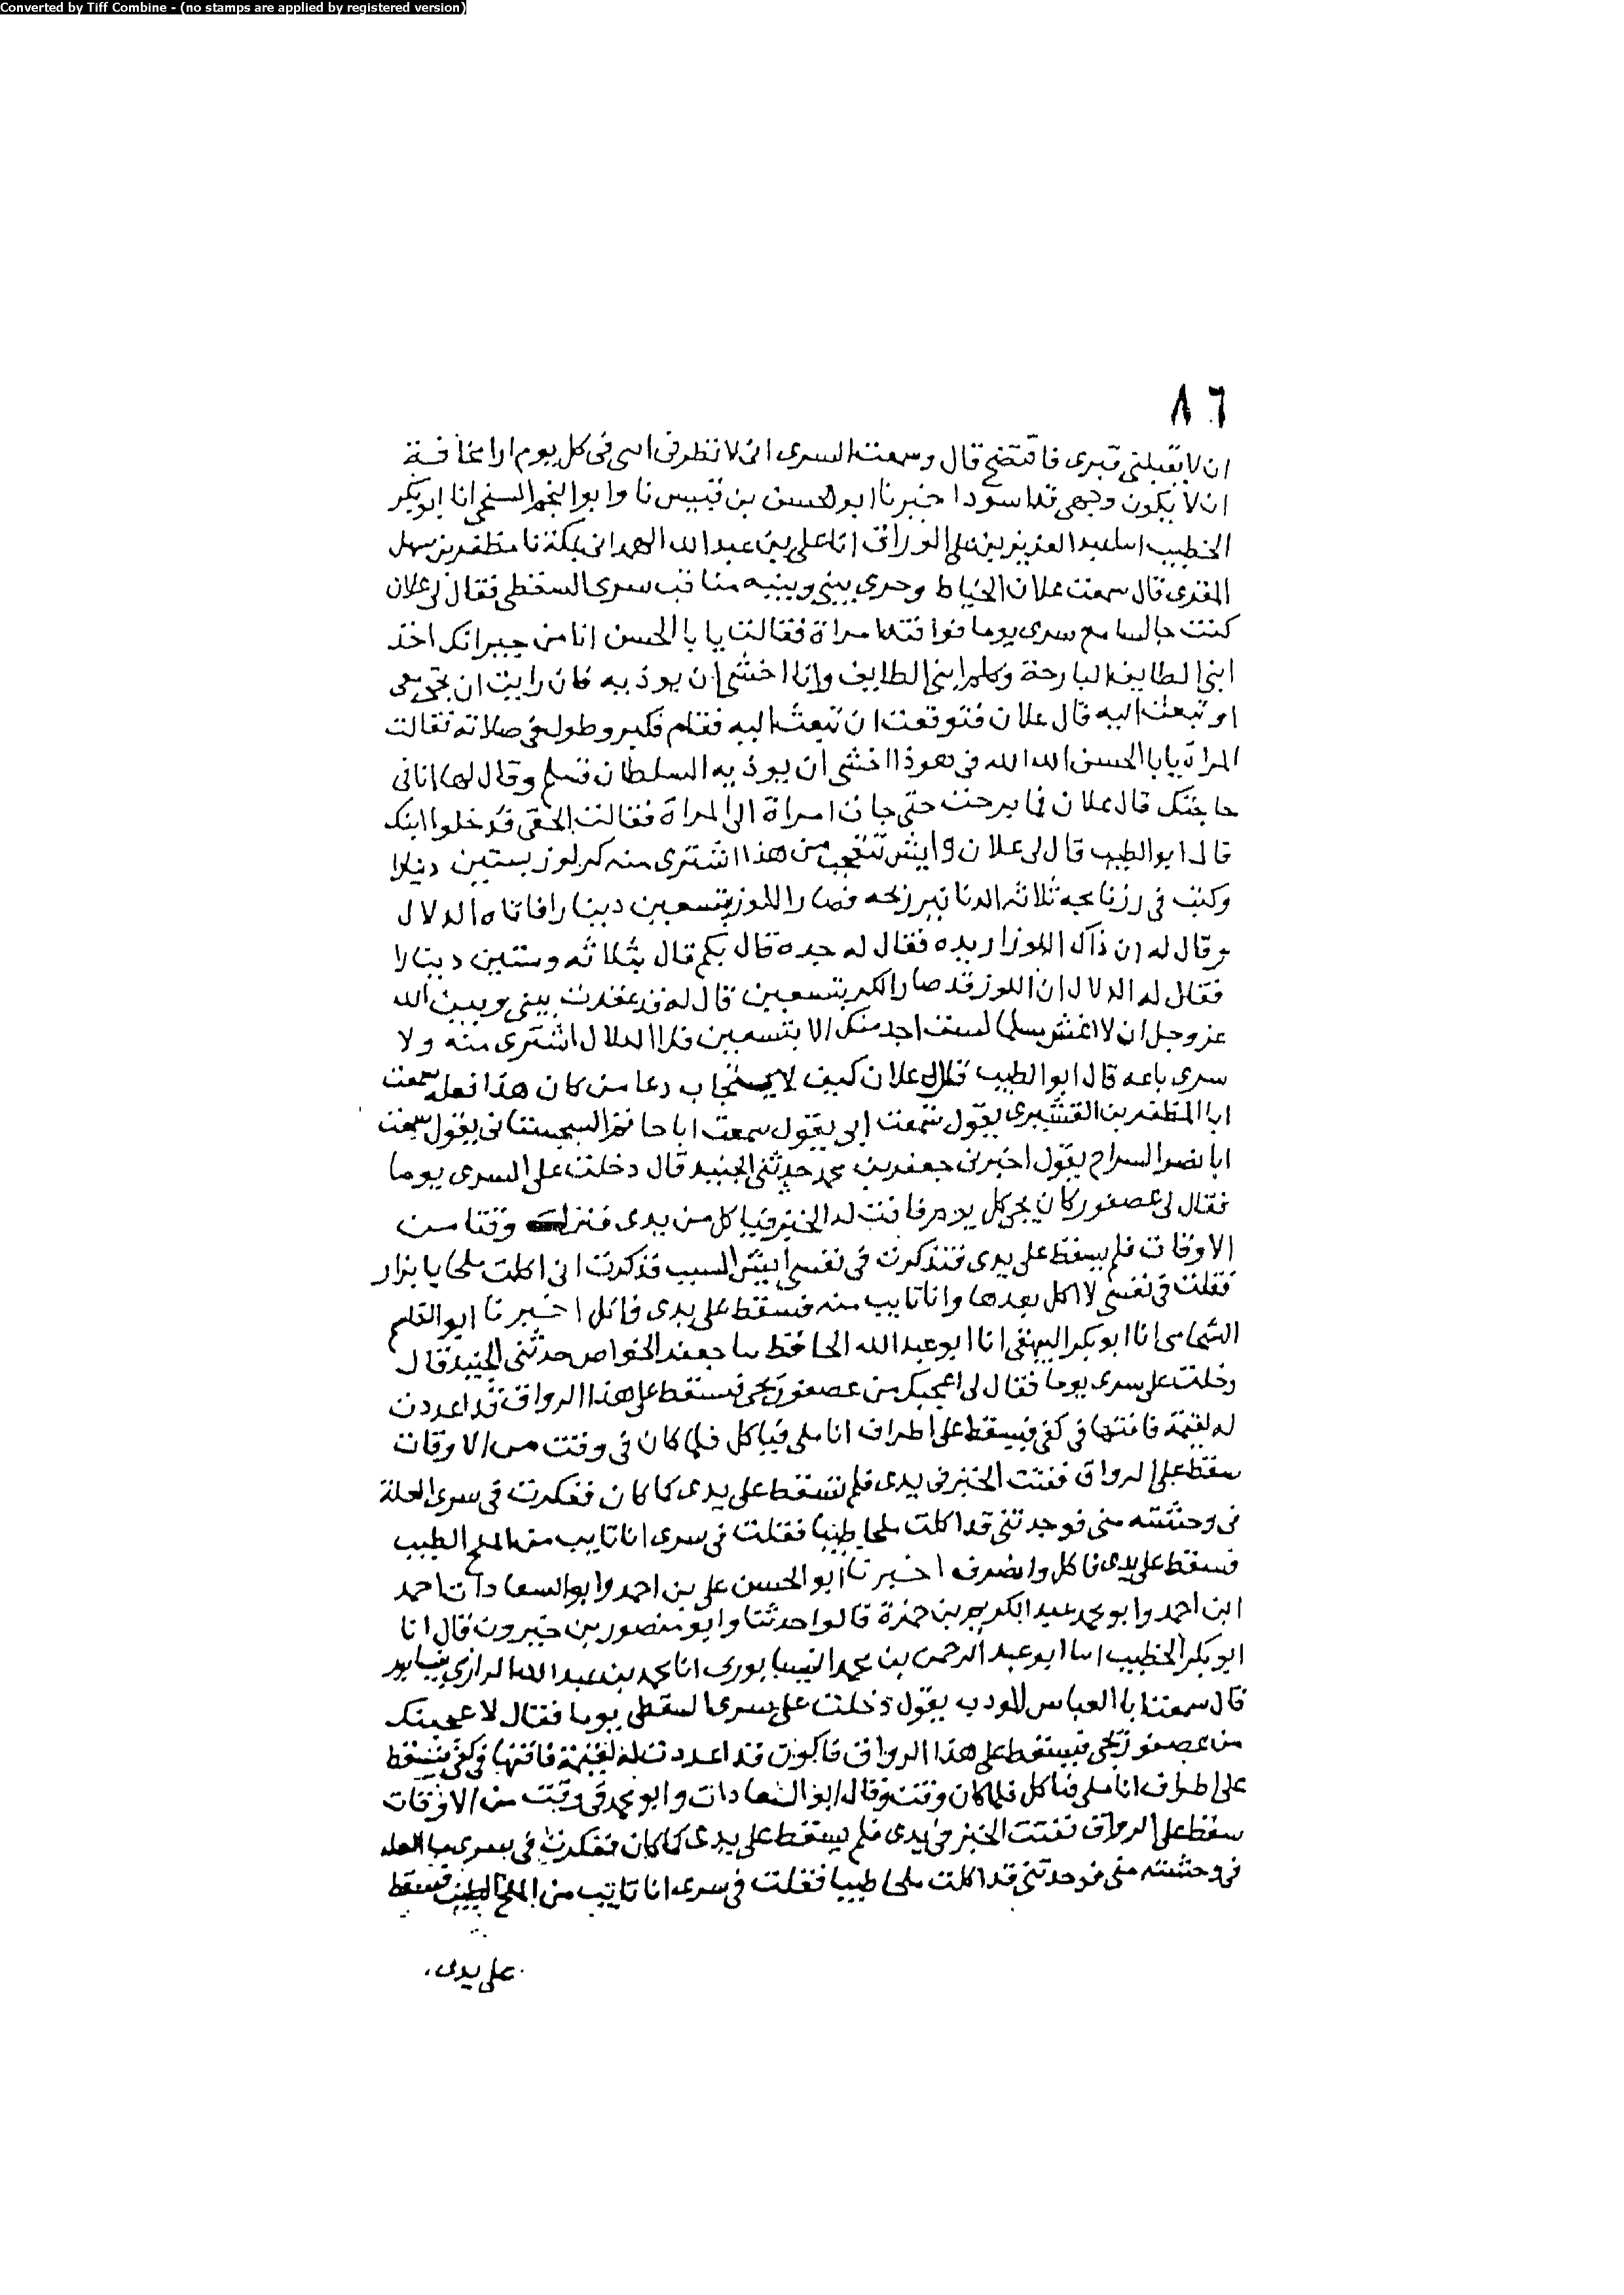 Converted by Tiff Combine - (no stamps are applied by registered version)
٨٦
ان لا يقبلني قبرى فافتضح قال وسمعت السرى انى لا نظر فى انفى فى كل يوم مرارا مخافة
ان لا يكون وجهى قد اسود اخبرنا ابو الحسن بن قبيس نا وابو النجم الشيحى انا ابو بكر
الخطيب انا عبد العزيز بن على الوراق انا على بن عبد الله الهمدانى بمكة نا مظفر بن سهل
المقرى قال سمعت علان الخياط وجرى بينى وبينه مناقب سرى السقطى فقال لى علان
كنت جالسا مع سرى يوما فوافته امراة فقالت يا با الحسن انا من جيرانك اخذ
ابنى الطايف البارحة وكلم ابنى الطايف وانا اخشى ان يوذيه فان رايت ان تجى معى
او تبعث اليه قال علان فتوقعت ان تبعث اليه فقام فكبر وطول فى صلاته فقالت
المراة يا با الحسن الله الله فى هوذا اخشى ان يوذيه السلطان فسلم وقال لها انا فى
حاجتك قال علان فما برحت حتى جات امراة الى المراة فقالت الحقى قد خلوا ابنك
قال ابو الطيب قال لى علان وايش تتعجب من هذا اشترى منه كر لوز بستين دينارا
وكتب فى رزنامجه ثلاثة الدنانير ربحه فصار اللوز بتسعين دينارا فاتاه الدلال
وقال له ان ذاك اللوز اريده فقال له خده قال بكم قال بثلاثه وستين دينارا
فقال له الدلال ان اللوز قد صار الكر بتسعين قال له قد عقدت بينى وبين الله
عز وجل ان لا اغش مسلما لست اخد منك الا بتسعين فلا الدلال اشترى منه ولا
سرى باعه قال ابو الطيب قال لى علان كيف لا يستجاب دعا من كان هذا فعله سمعت
ابا المظفر بن القشيرى يقول سمعت ابى يقول سمعت ابا حاتم السجستانى يقول سمعت
ابا نصر السراج يقول اخبرنى جعفر بن محمد حدثنى الجنيد قال دخلت على السرى يوما
فقال لى عصفور كان يجى كل يوم فافت له الخبز فياكل من يدى فنزل وقتا من
الاوقات فلم يسقط على يدى فتذكرت فى نفسى ايش السبب فذكرت انى اكلت ملحا بابزار
فقلت فى نفسى لا اكل بعدها وانا تايب منه فسقط على يدى فاكل اخبرنا ابو القاسم
الشحامى انا ابو بكر البيهقى انا ابو عبد الله الحافظ نا جعفر الخواص حدثنى الجنيد قال
دخلت على سرى يوما فقال لى اعجبك من عصفور يجى فيسقط على هذا الرواق قد اعددت
له لقيمة فافتها فى كفى فيسقط على اطراف اناملى فياكل فلما كان فى وقت من الاوقات
سقط على الرواق ففتت الخبز فى يدى فلم تسقط على يدى كما كان ففكرت فى سرى العلة
فى وحشته منى فوجدتنى قد اكلت ملحا طيبا فقلت فى سرى انا تايب من الملح الطيب
فسقط على يدى فاكل وانصرف اخبرنا ابو الحسن على بن احمد وابو السعادات احمد
ابن احمد وابو محمد عبد الكريم بن حمزة قالوا حدثنا وابو منصور بن خيرون قال انا
ابو بكر الخطيب انا ابو عبد الرحمن بن محمد النيسابورى انا محمد بن عبد الله الرازى بنيسابور
قال سمعت ابا العباس المودب يقول دخلت على سرى السقطى يوما فقال لا عجبنك
من عصفور يجى فيسقط على هذا الرواق فاكون قد اعددت له لقيمة فافتها فى كفى فيسقط
على اطراف اناملى فياكل فلما كان وقت وقال ابو السعادات وابو محمد فى وقت من الاوقات
سقط على الرواق ففتت الخبز فى يدى فلم يسقط على يدى كما كان ففكرت فى سرى ما العله
فى وحشته منى فوجدتنى قد اكلت ملحا طيبا فقلت فى سرى انا تايب من الملح الطيب فسقط
على يدى